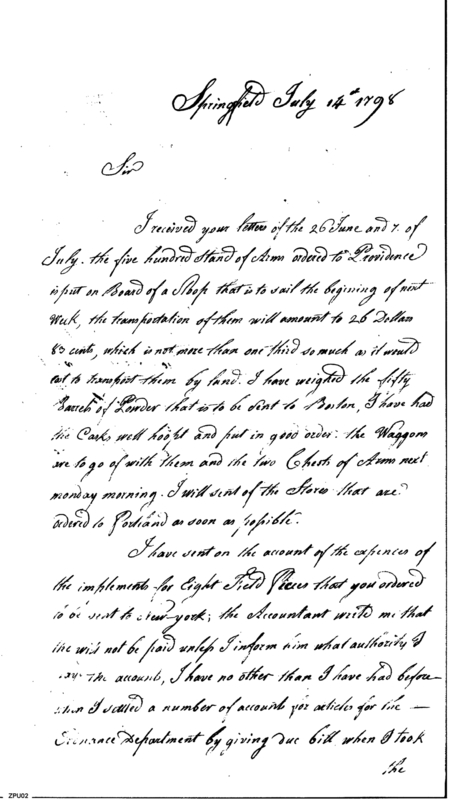 Springfield July 14th 1798
Sir
I received your letters of the 26 June and 7. of
July. the five hundred Stand of Arms ordered to Providence
is put on Board of a Sloop that is to sail the begining of next
Week, the transportation of them will amount to 26 Dollars
83 cents, which is not more than one third so much as it would
cost to transport them by land. I have weighed the fifty
Barrels of Powder that is to be sent to Boston, I have had
the Casks well hoopt and put in good order. the Waggons
are to go of with them and the two Chests of Arms next
monday morning. I will sent of the Stores that are
ordered to Portland as soon as possible.
I have sent on the account of the expences of
the implements for Eight Field Pieces that you ordered
to be sent to New-york; the Accountant write me that
will not be paid unless I inform him what authority I
the account, I have no other than I have had before
when I settled a number of accounts for articles for the
Ordnance Department by giving due bill when I took
the
ZPU02